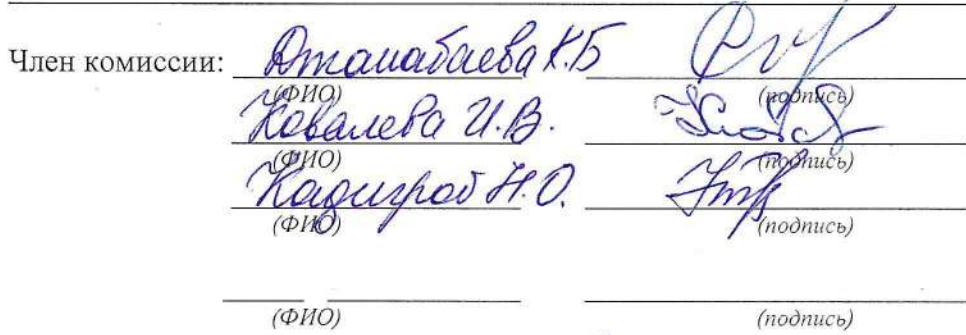 Член комиссии: Джамабаева К.Б
(ФИО) (подпись)
Ковалева И.В.
(ФИО) (подпись)
Кадиграб Н.О.
(ФИО) (подпись)
(ФИО) (подпись)